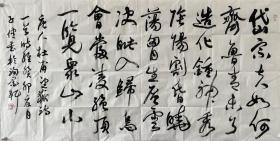 岱宗夫如何
齊魯青未了
造化鍾神秀
陰陽割昏曉
蕩胸生層雲
決眥入歸鳥
會當凌絕頂
一覽眾山小
唐人杜甫望嶽詩
一首時維癸卯夏月